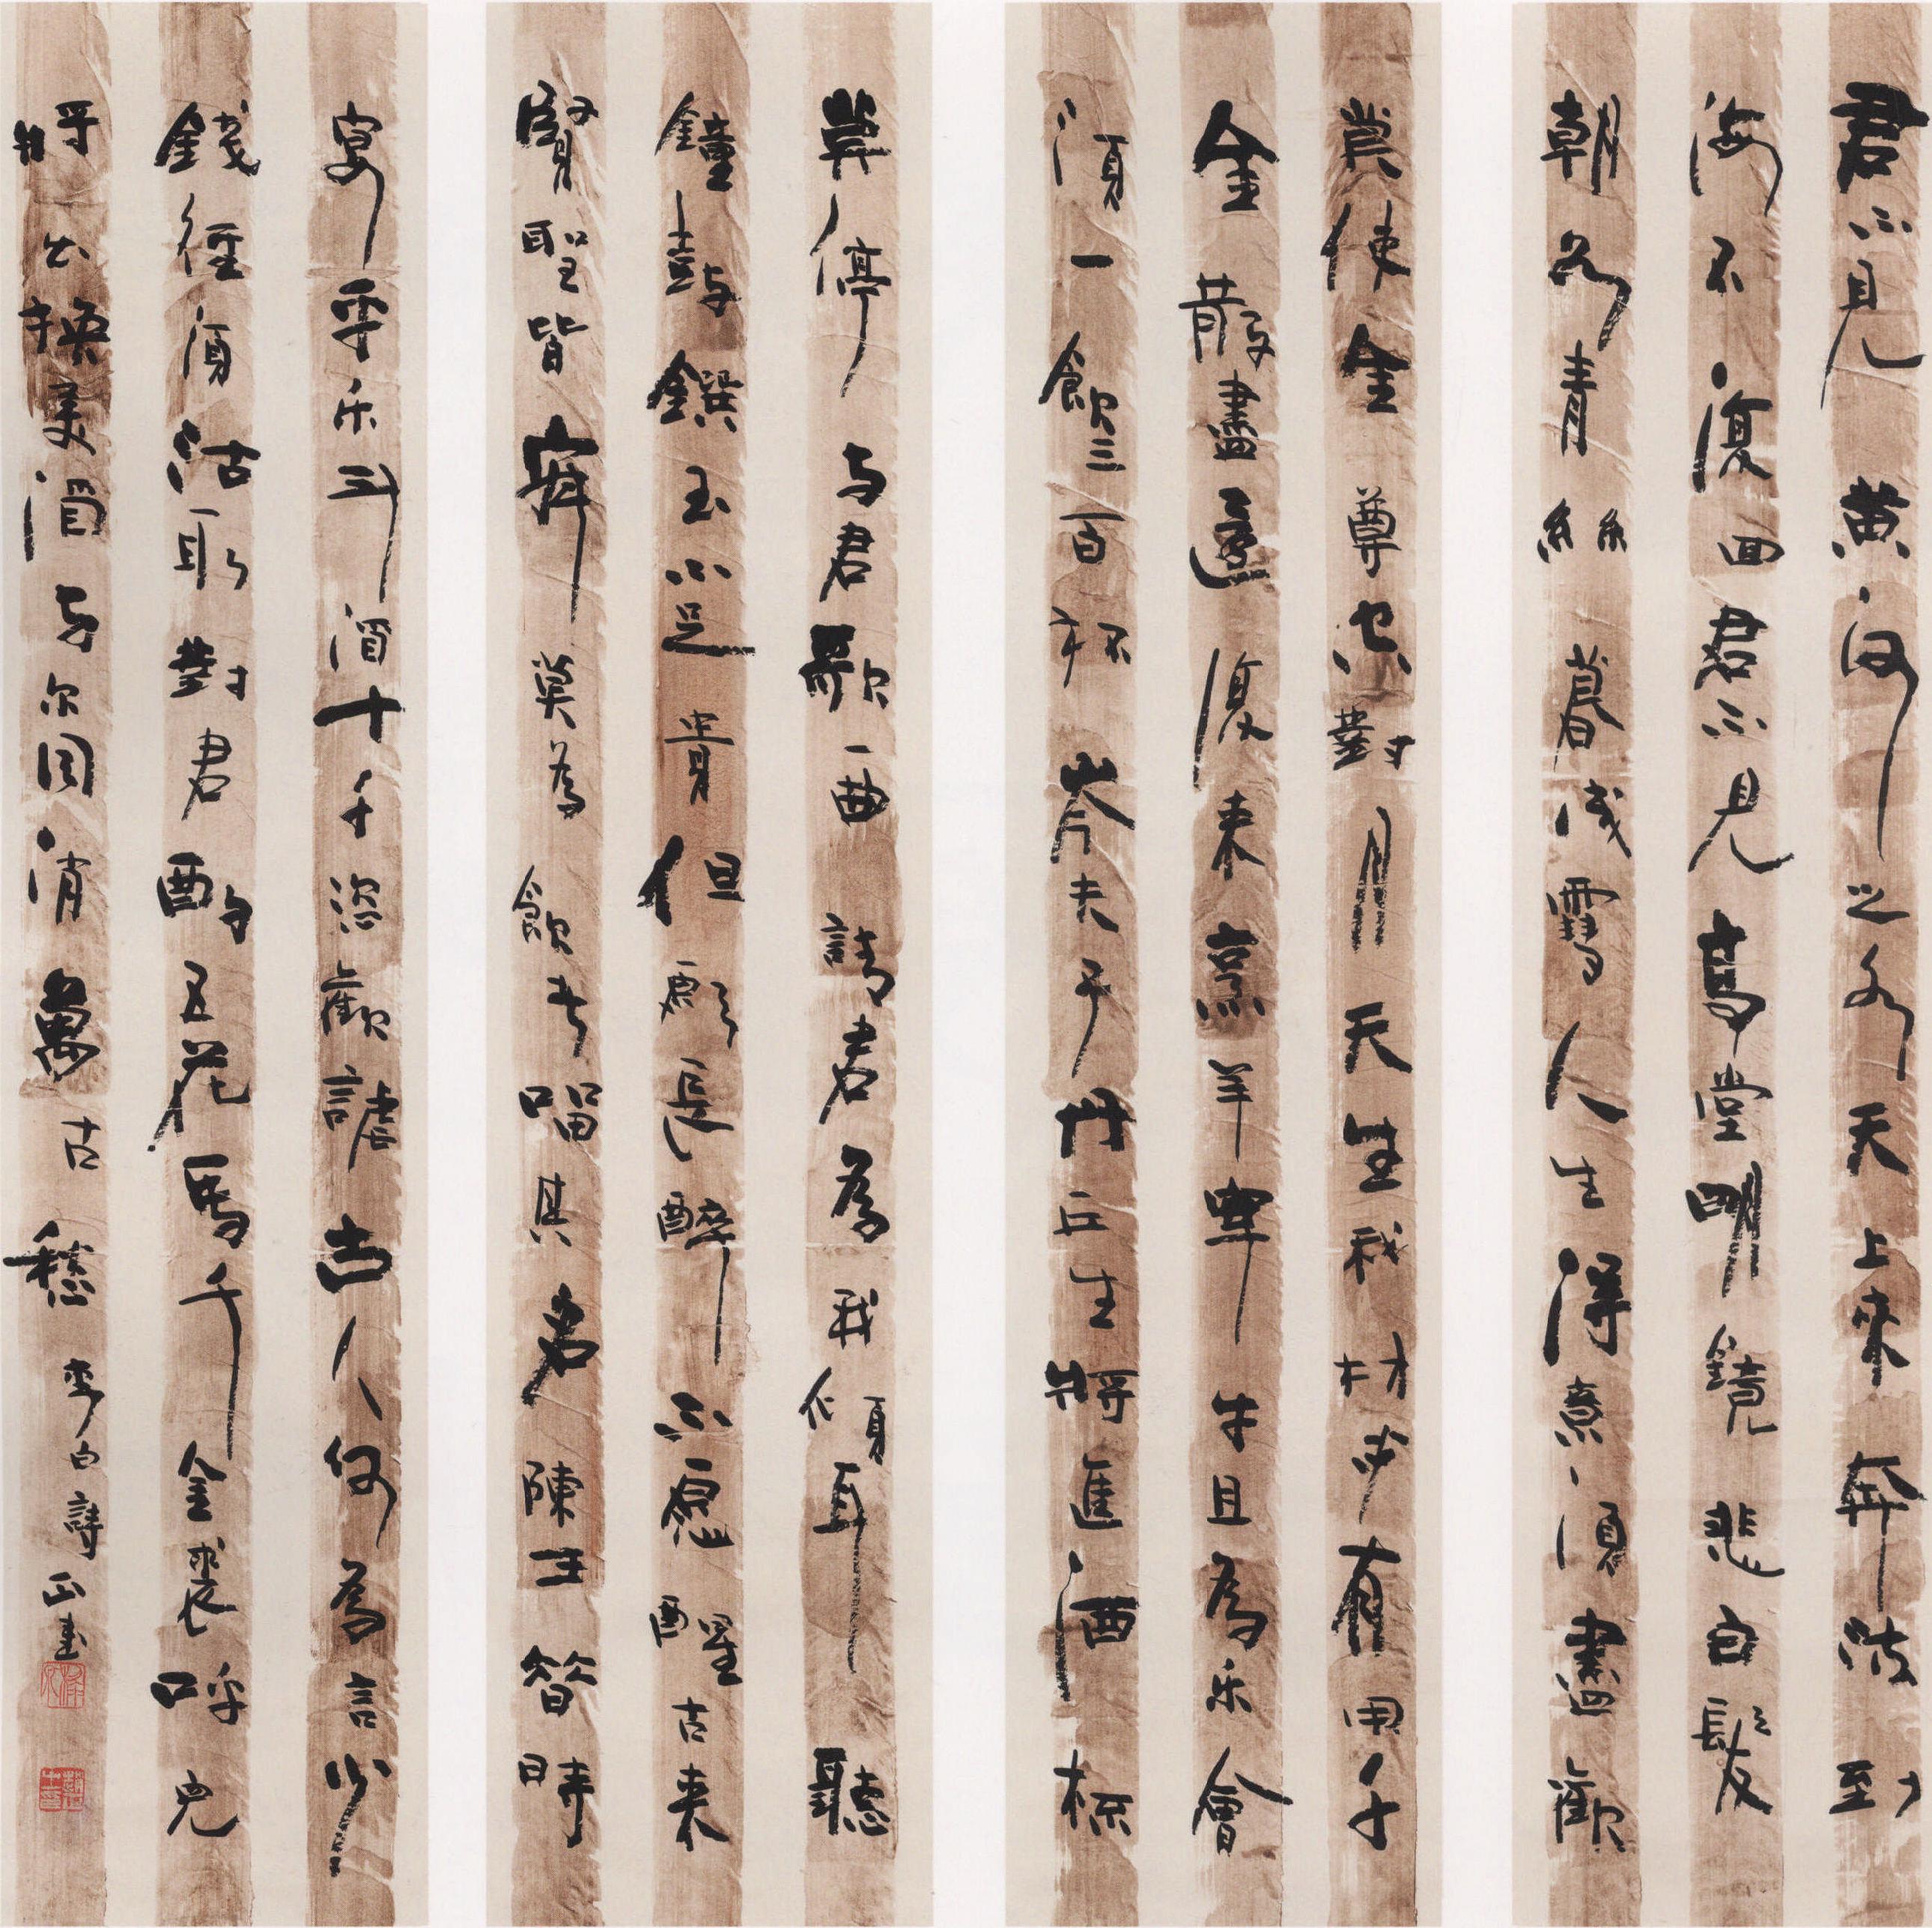 君不見黃河之水天上來奔流到
海不復回君不見高堂明鏡悲白髮
朝如青絲暮成雪人生得意須盡歡
莫使金尊空對月天生我材必有用千
金散盡還復來烹羊宰牛且為乐會
須一飲三百杯岑夫子丹丘生將進酒杯
莫停与君歌一曲請君為我傾耳聽
鐘鼓饌玉不足貴但願長醉不願醒古來
賢聖皆寂莫為飲者留其名陳王昔時
宴平乐斗酒十千恣歡謔古人何為言少
錢徑須沽取對君酌五花馬千金裘呼兒
將出換美酒与尔同消萬古愁 李白詩 正書